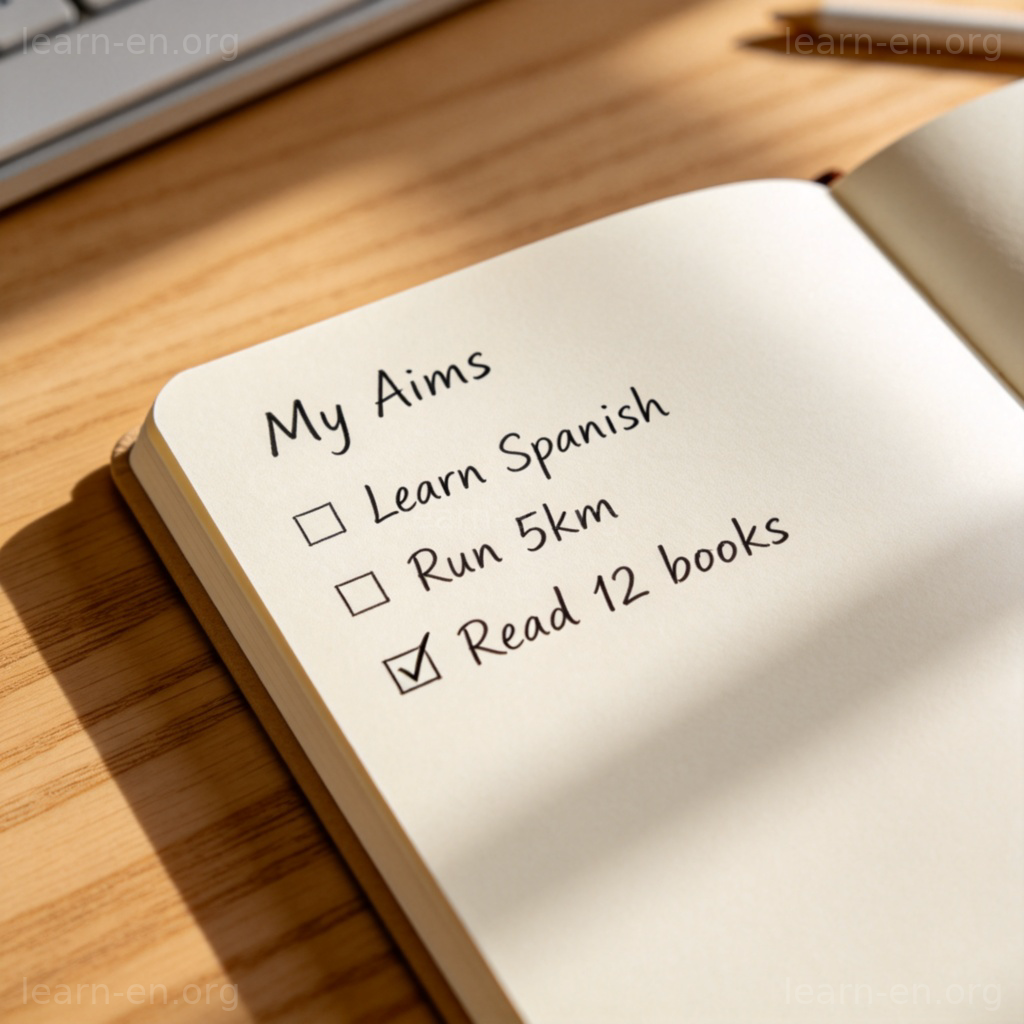 learn-en.org
learn-en.org
My Aims
Learn Spanish
Run 5km
Read 12 books
learn-en.org
learn-en.org